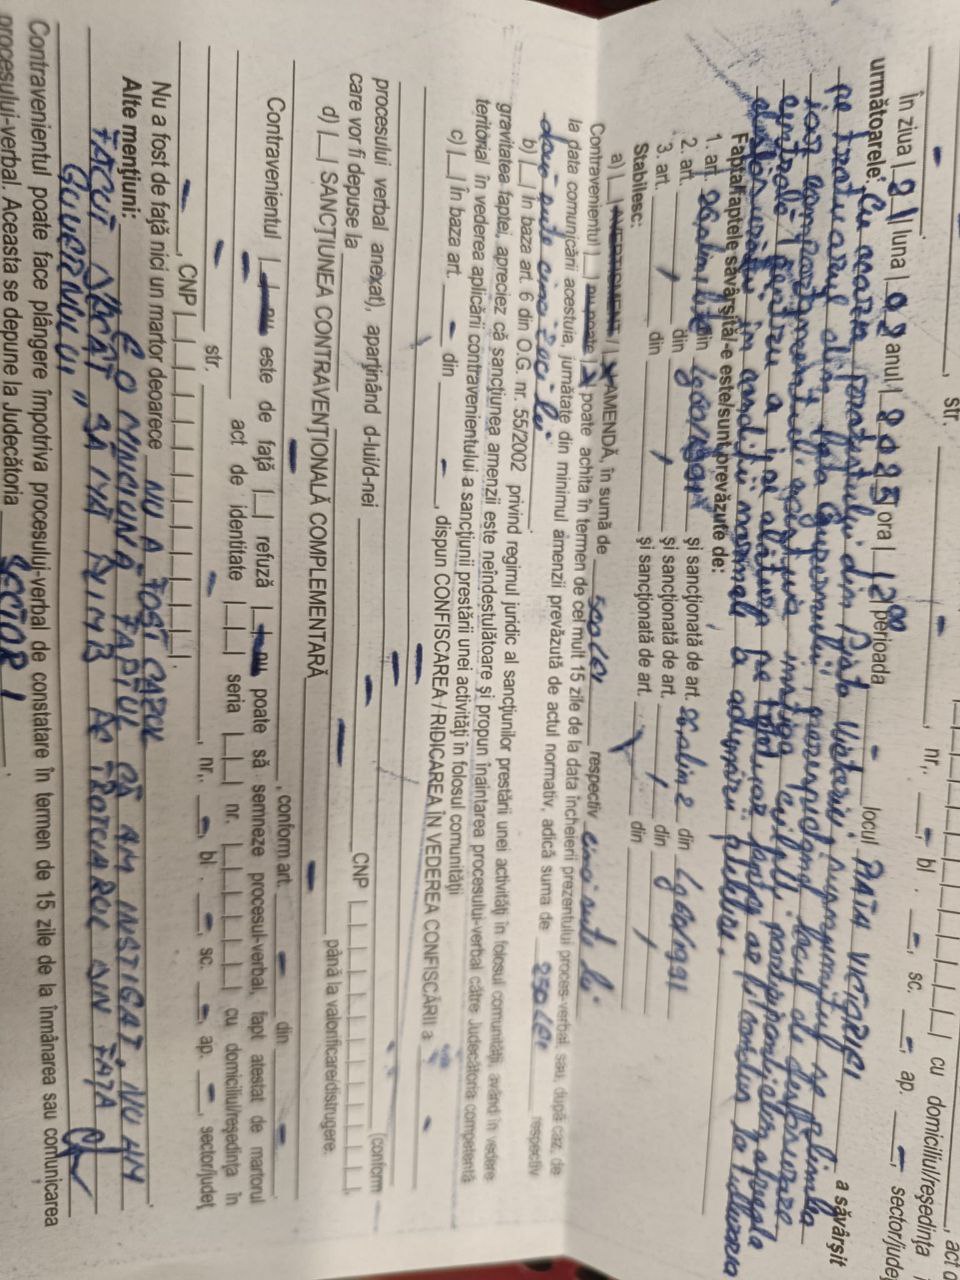 str.
nr.
bl.
sc.
ap.
sector/jude
act d
cu domiciliul/reședința
În ziua 21 luna 02 anul 2025 ora 12 00 perioada - locul PIAȚA VICTORIEI a săvârșit
următoarele: Cu ocazia protestului din Piața Victoriei, susnumitul se plimba
pe trotuarul din fața Guvernului, nerespectând locul de desfășurare
iar comportamentul acestuia instiga ceilalți participanți
pentru a i se alătura pe trotuar
în condiții normale a adunării publice.
Fapta/Faptele săvârșită/-e este/sunt prevăzute de:
1. art. 26 alin 1 lit din L 60/1991 și sancționată de art. 26 alin 2 din L 60/1991
2. art. din și sancționată de art. din
3. art. din și sancționată de art. din
Stabilesc:
a) AVERTISMENT / X AMENDĂ, în sumă de 500 LEI respectiv cinci sute lei
Contravenientul nu poate X poate achita în termen de cel mult 15 zile de la data încheierii prezentului proces-verbal sau, după caz, de
la data comunicării acestuia, jumătate din minimul amenzii prevăzută de actul normativ, adică suma de 250 LEI respectiv
două sute cinci zeci lei
b) În baza art. 6 din O.G. nr. 55/2002 privind regimul juridic al sancțiunilor prestării unei activități în folosul comunității, având în vedere
gravitatea faptei, apreciez că sancțiunea amenzii este neîndestulătoare și propun înaintarea procesului-verbal către Judecătoria competentă
teritorial în vederea aplicării contravenientului a sancțiunii prestării unei activități în folosul comunității
c) În baza art. - din -, dispun CONFISCAREA / RIDICAREA ÎN VEDEREA CONFISCĂRII a
(conform
procesului verbal anexat), aparținând d-lui/d-nei CNP
care vor fi depuse la până la valorificare/distrugere.
d) SANCȚIUNEA CONTRAVENȚIONALĂ COMPLEMENTARĂ
, conform art. - din -
Contravenientul nu este de față refuză nu poate să semneze procesul-verbal, fapt atestat de martorul
act de identitate seria nr. cu domiciliul/reședința în
str. nr. -, bl. -, sc. -, ap. -, sector/județ
, CNP
Nu a fost de față nici un martor deoarece NU A FOST CAZUL
Alte mențiuni: E O MINCIUNĂ FAPTUL CĂ AM INSTIGAT. NU AM
FĂCUT PE TROTUARUL DIN FAȚA
GUVERNULUI"
Contravenientul poate face plângere împotriva procesului-verbal de constatare în termen de 15 zile de la înmânarea sau comunicarea
procesului-verbal. Aceasta se depune la Judecătoria SECTOR 1